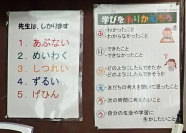 先生は、しかります
1. あぶない
2. めいわく
3. しつれい
4. ずるい
5. げひん
学びをふりかえろう
わかったこと
わからなかったこと
できたこと
できなかったこと
どのようにしたらできたか
どのようにしたらできそうか
友だちの考えを聞いて思ったこと
次の時間に考えたいこと
自分の生活や学習に
生かしたいこと